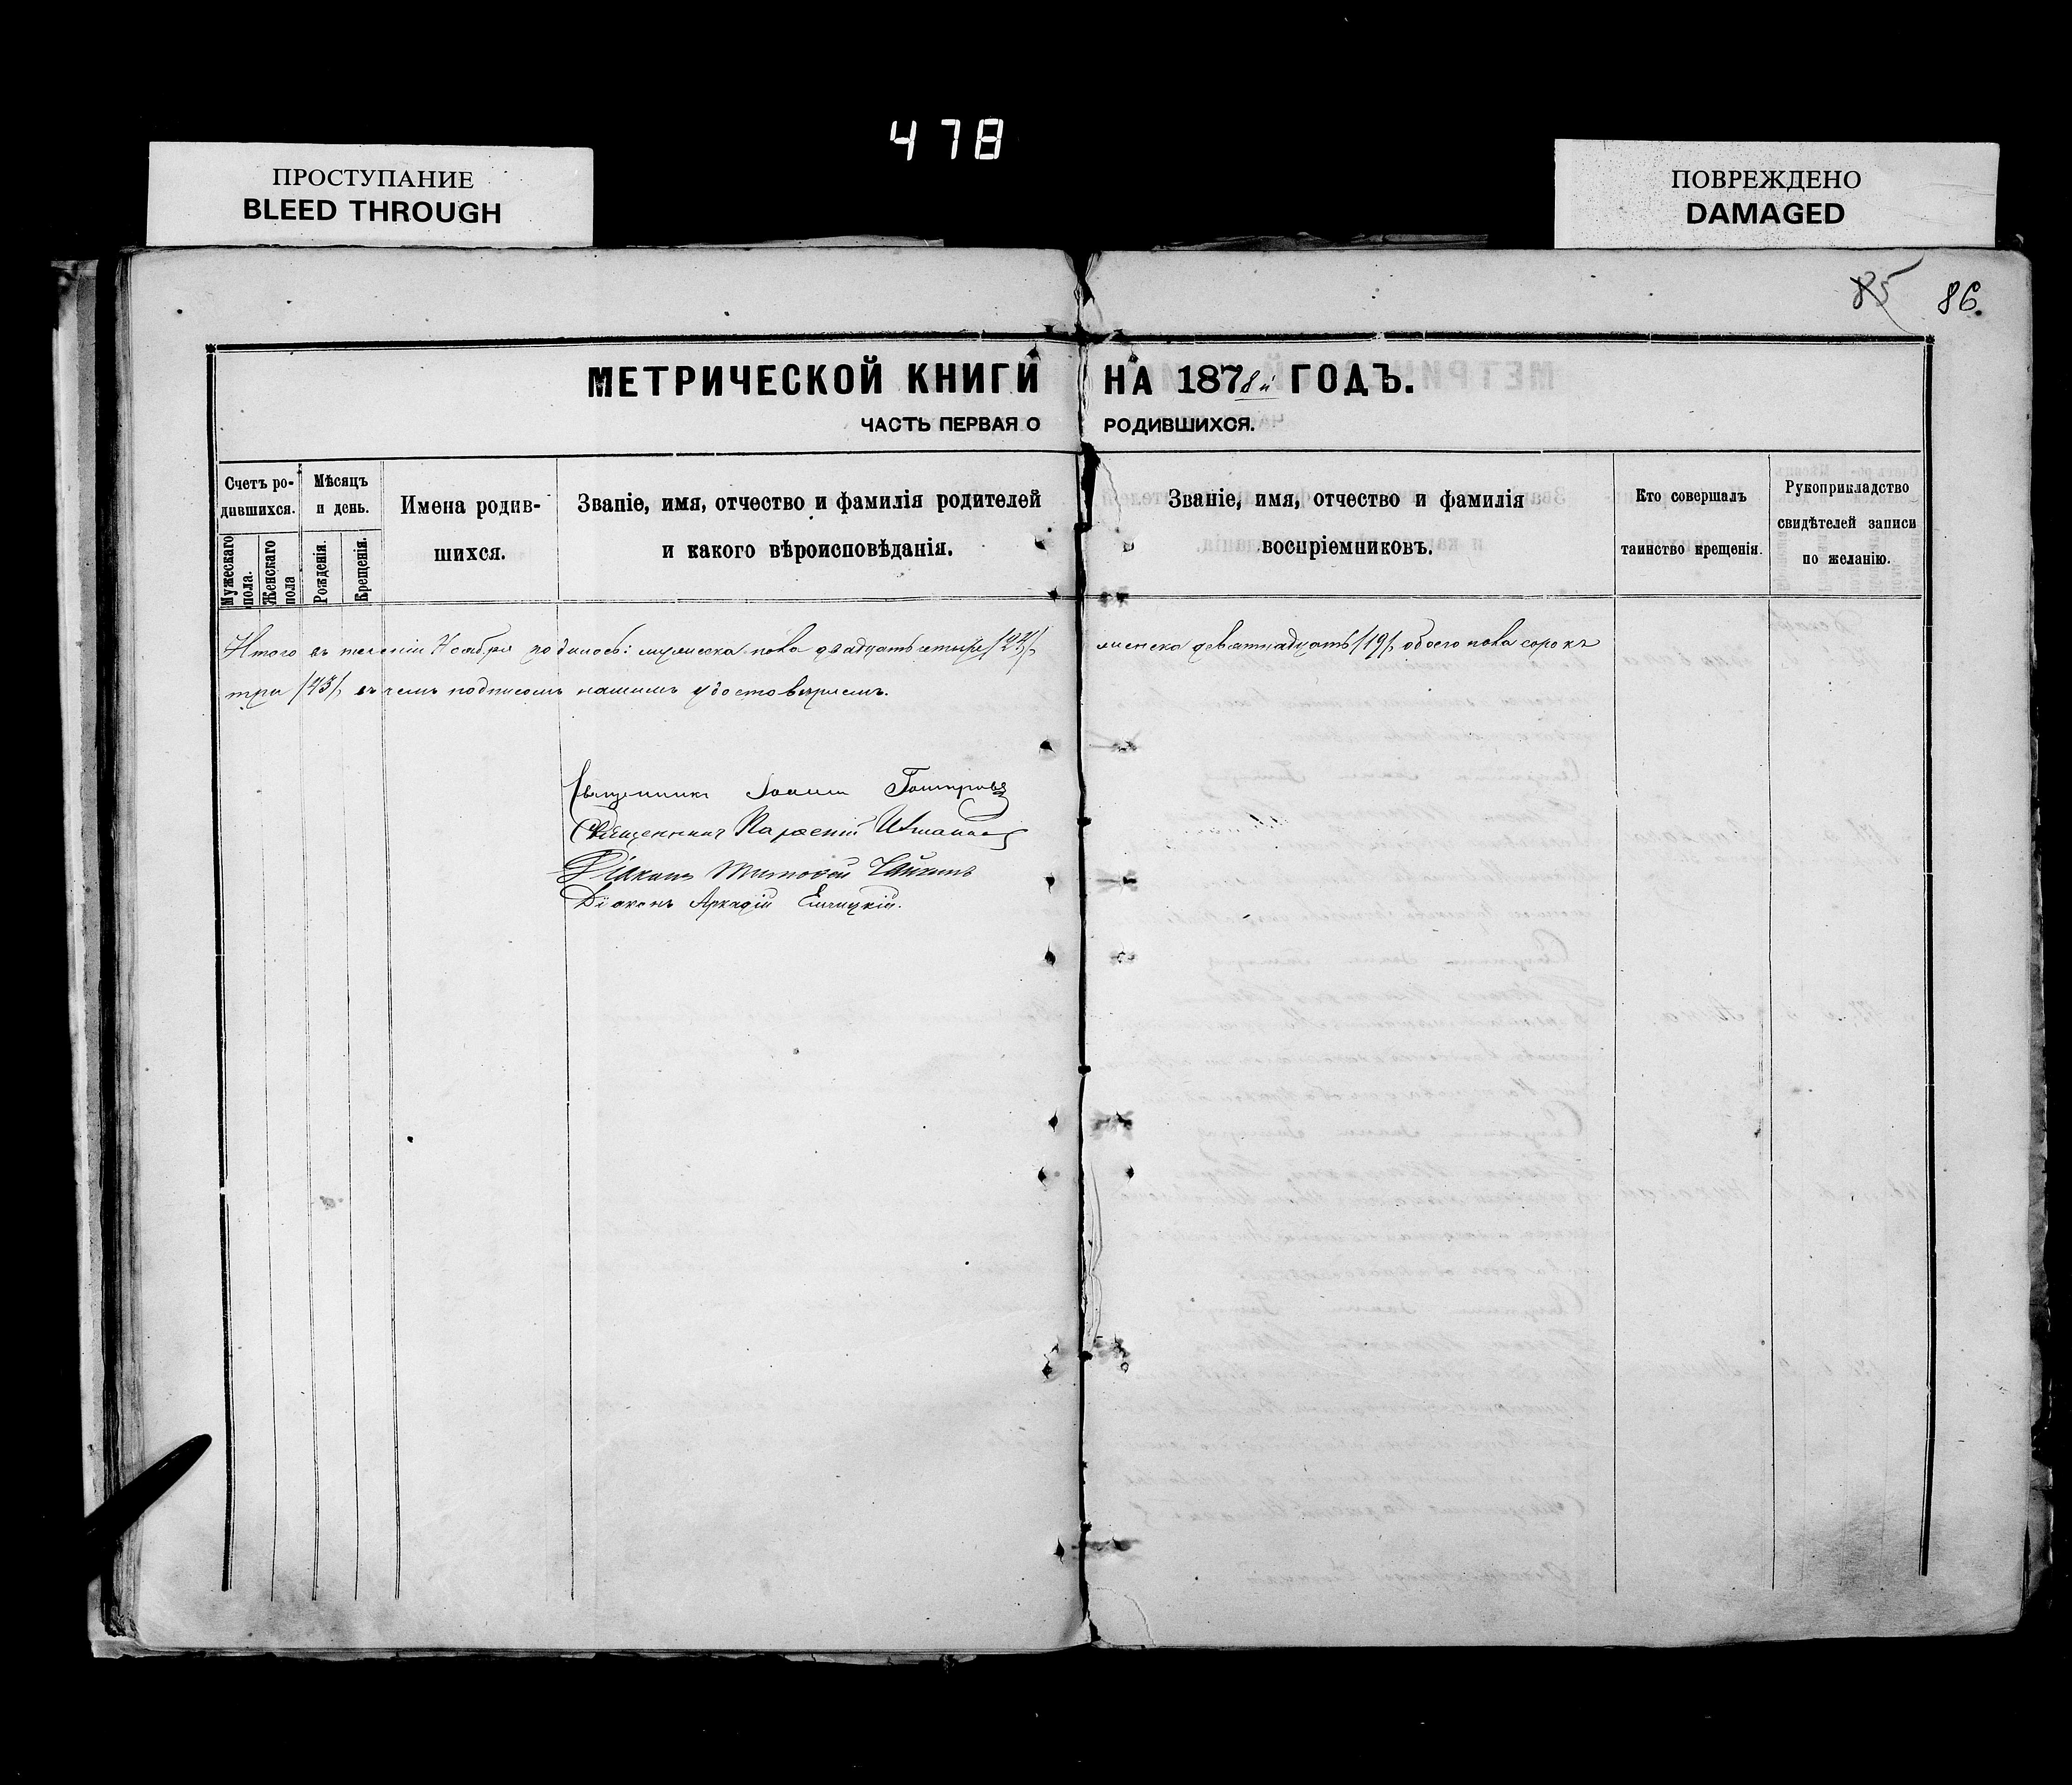 478
ПРОСТУПАНИЕ
BLEED THROUGH
ПОВРЕЖДЕНО
DAMAGED
85 86.
МЕТРИЧЕСКОЙ КНИГИ НА 1878й ГОДЪ.
ЧАСТЬ ПЕРВАЯ О РОДИВШИХСЯ.
Счетъ родившихся.
Мужескаго пола.
Женскаго пола
Мѣсяцъ и день.
Рожденія.
Крещенія.
Имена родив-
шихся.
Званіе, имя, отчество и фамилія родителей
и какого вѣроисповѣданія.
Званіе, имя, отчество и фамилія
воспріемниковъ.
Кто совершалъ
таинство крещенія.
Рукоприкладство
свидѣтелей записи
по желанію.
Итого въ теченіи Ноября родилось: мужеска пола двадцать четыре /24/, женска девятнадцать /19/, обоего пола сорокъ
три /43/, въ чемъ подписомъ нашимъ удостовѣряемъ.
Священникъ Іоаннъ
Священникъ
Діаконъ Тимофей
Діаконъ Аркадій